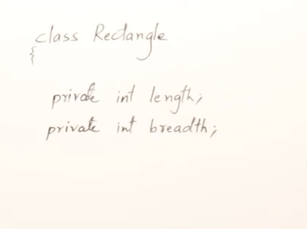 class Rectangle
{
private int length;
private int breadth;